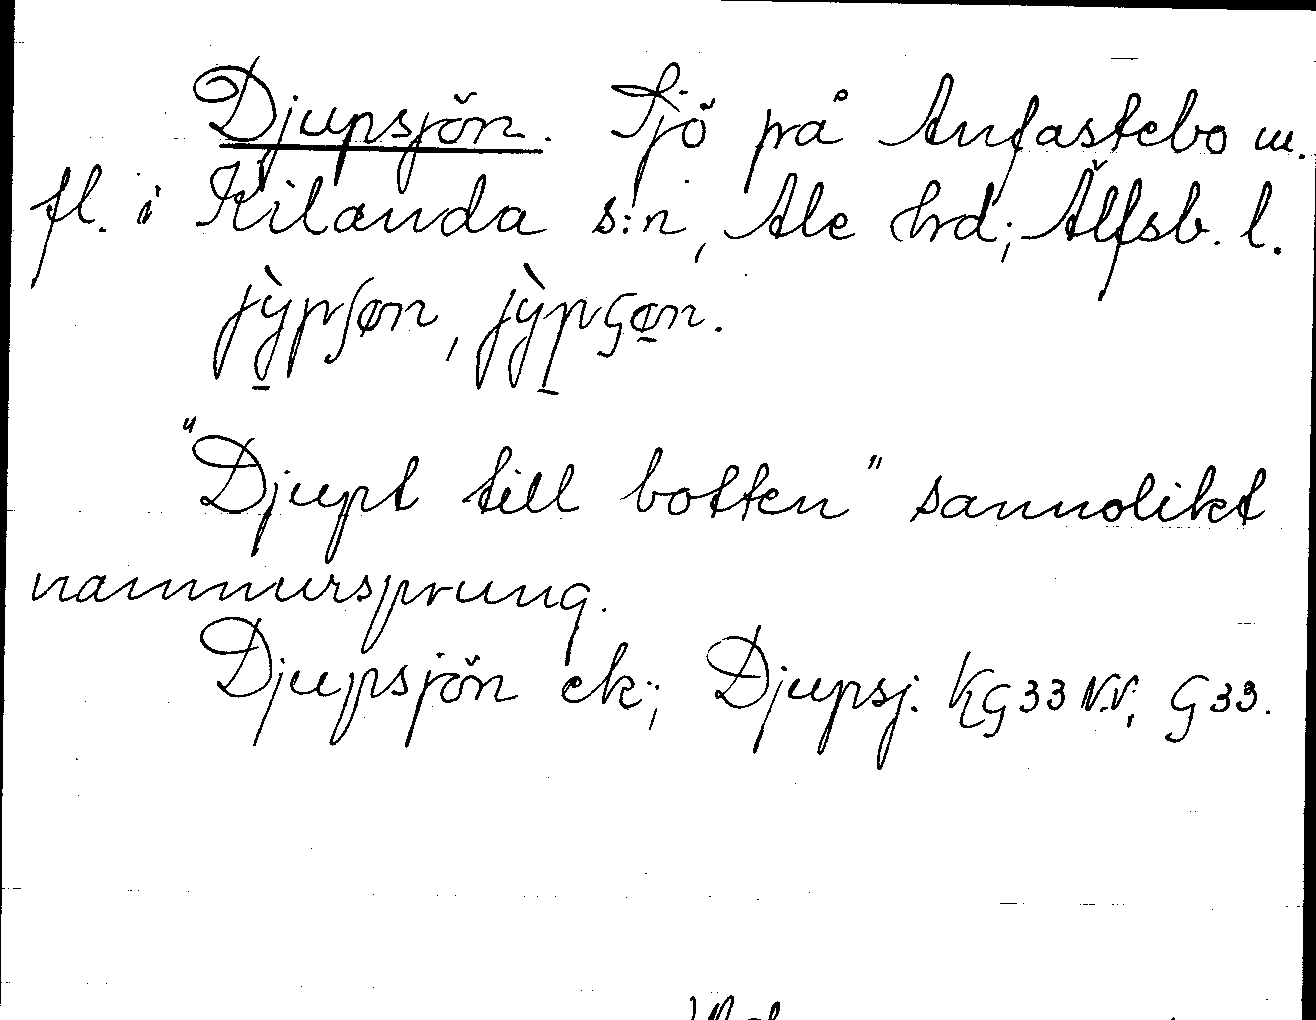 Djupsjön. Sjö på Anfastebo m.
fl. i Kilanda s:n, Ale hrd; Älfsb. l.
jỳpʃøn, jỳpçøn.
"Djupt till botten" sannolikt
namnursprung.
Djupsjön ek; Djupsj. KG33 NV; G33.